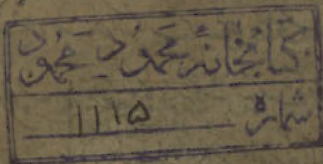 کتابخانهٔ محمود محمود
شماره ۱۱۱۵